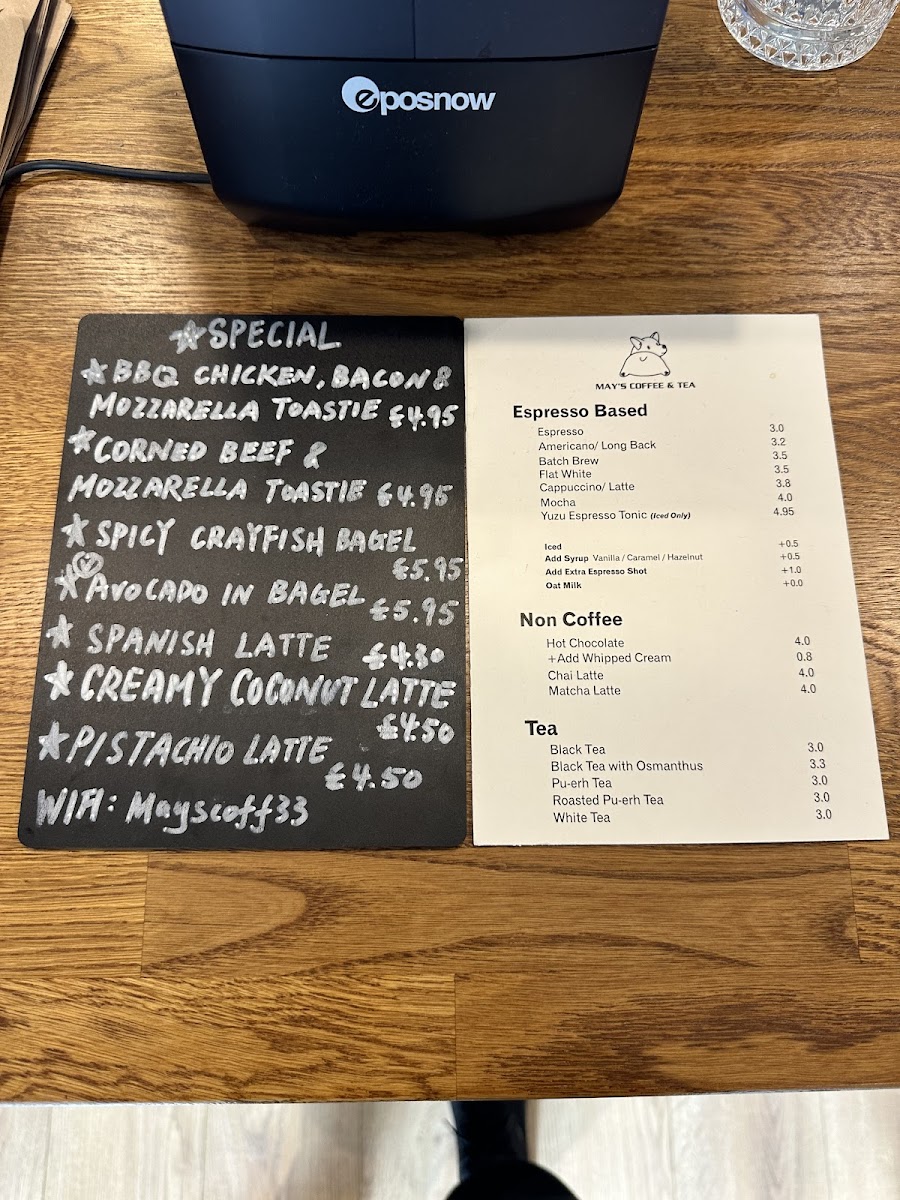 eposnow
☆SPECIAL
☆BBQ CHICKEN, BACON &
MOZZARELLA TOASTIE £4.95
☆CORNED BEEF &
MOZZARELLA TOASTIE £4.95
☆SPICY CRAYFISH BAGEL
£5.95
V
☆AVOCADO IN BAGEL £5.95
☆SPANISH LATTE £4.30
☆CREAMY COCONUT LATTE
£4.50
☆PISTACHIO LATTE
£4.50
WIFI: Mayscoff33
MAY'S COFFEE & TEA
Espresso Based
Espresso 3.0
Americano/ Long Back 3.2
Batch Brew 3.5
Flat White 3.5
Cappuccino/ Latte 3.8
Mocha 4.0
Yuzu Espresso Tonic (Iced Only) 4.95
Iced +0.5
Add Syrup Vanilla / Caramel / Hazelnut +0.5
Add Extra Espresso Shot +1.0
Oat Milk +0.0
Non Coffee
Hot Chocolate 4.0
+Add Whipped Cream 0.8
Chai Latte 4.0
Matcha Latte 4.0
Tea
Black Tea 3.0
Black Tea with Osmanthus 3.3
Pu-erh Tea 3.0
Roasted Pu-erh Tea 3.0
White Tea 3.0